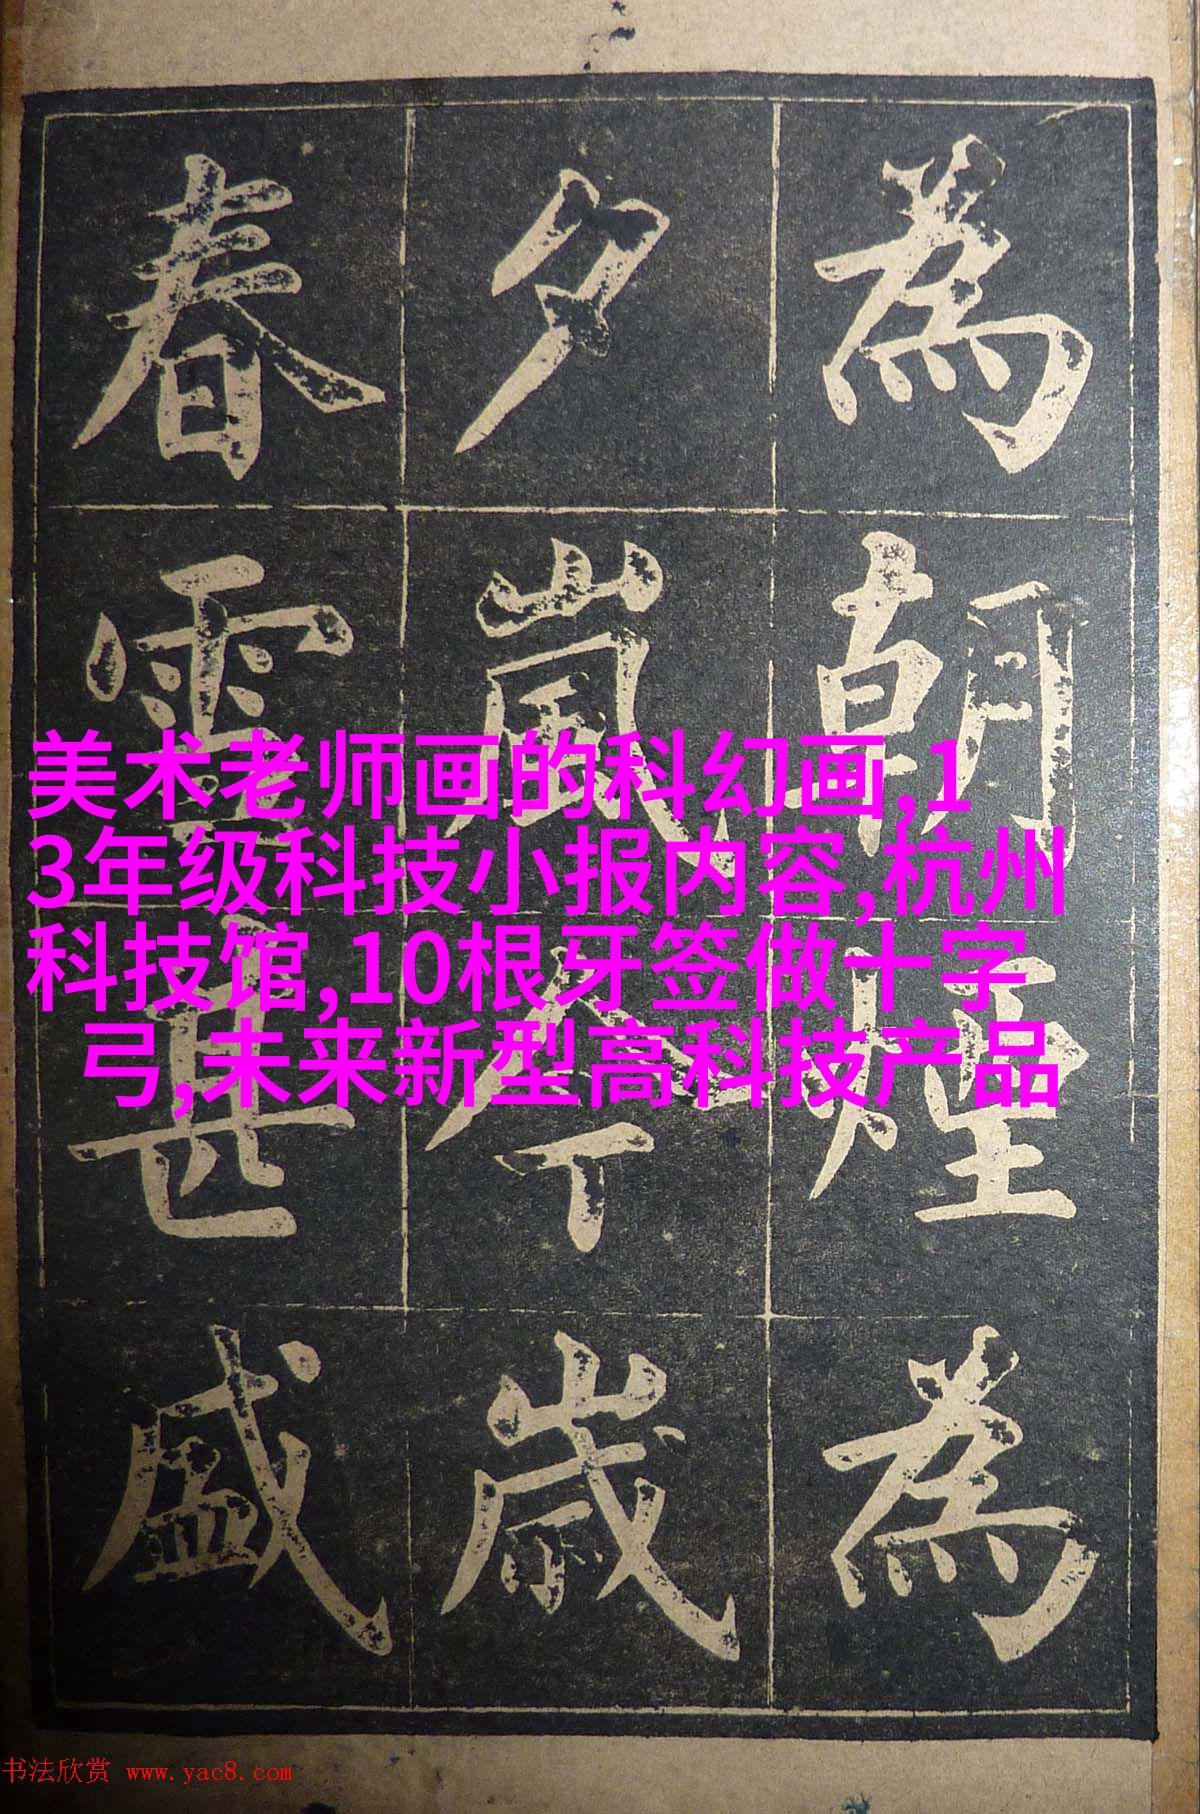 為朝煙為
夕嵐今歲
春雪甚盛
美术老师画的科幻画,1
3年级科技小报内容,杭州
科技馆,10根牙签做十字
弓,未来新型高科技产品
书法欣赏 www.yac8.com